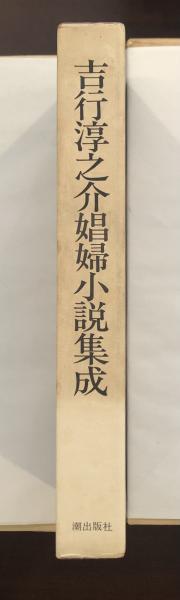 吉行淳之介娼婦小説集成
潮出版社